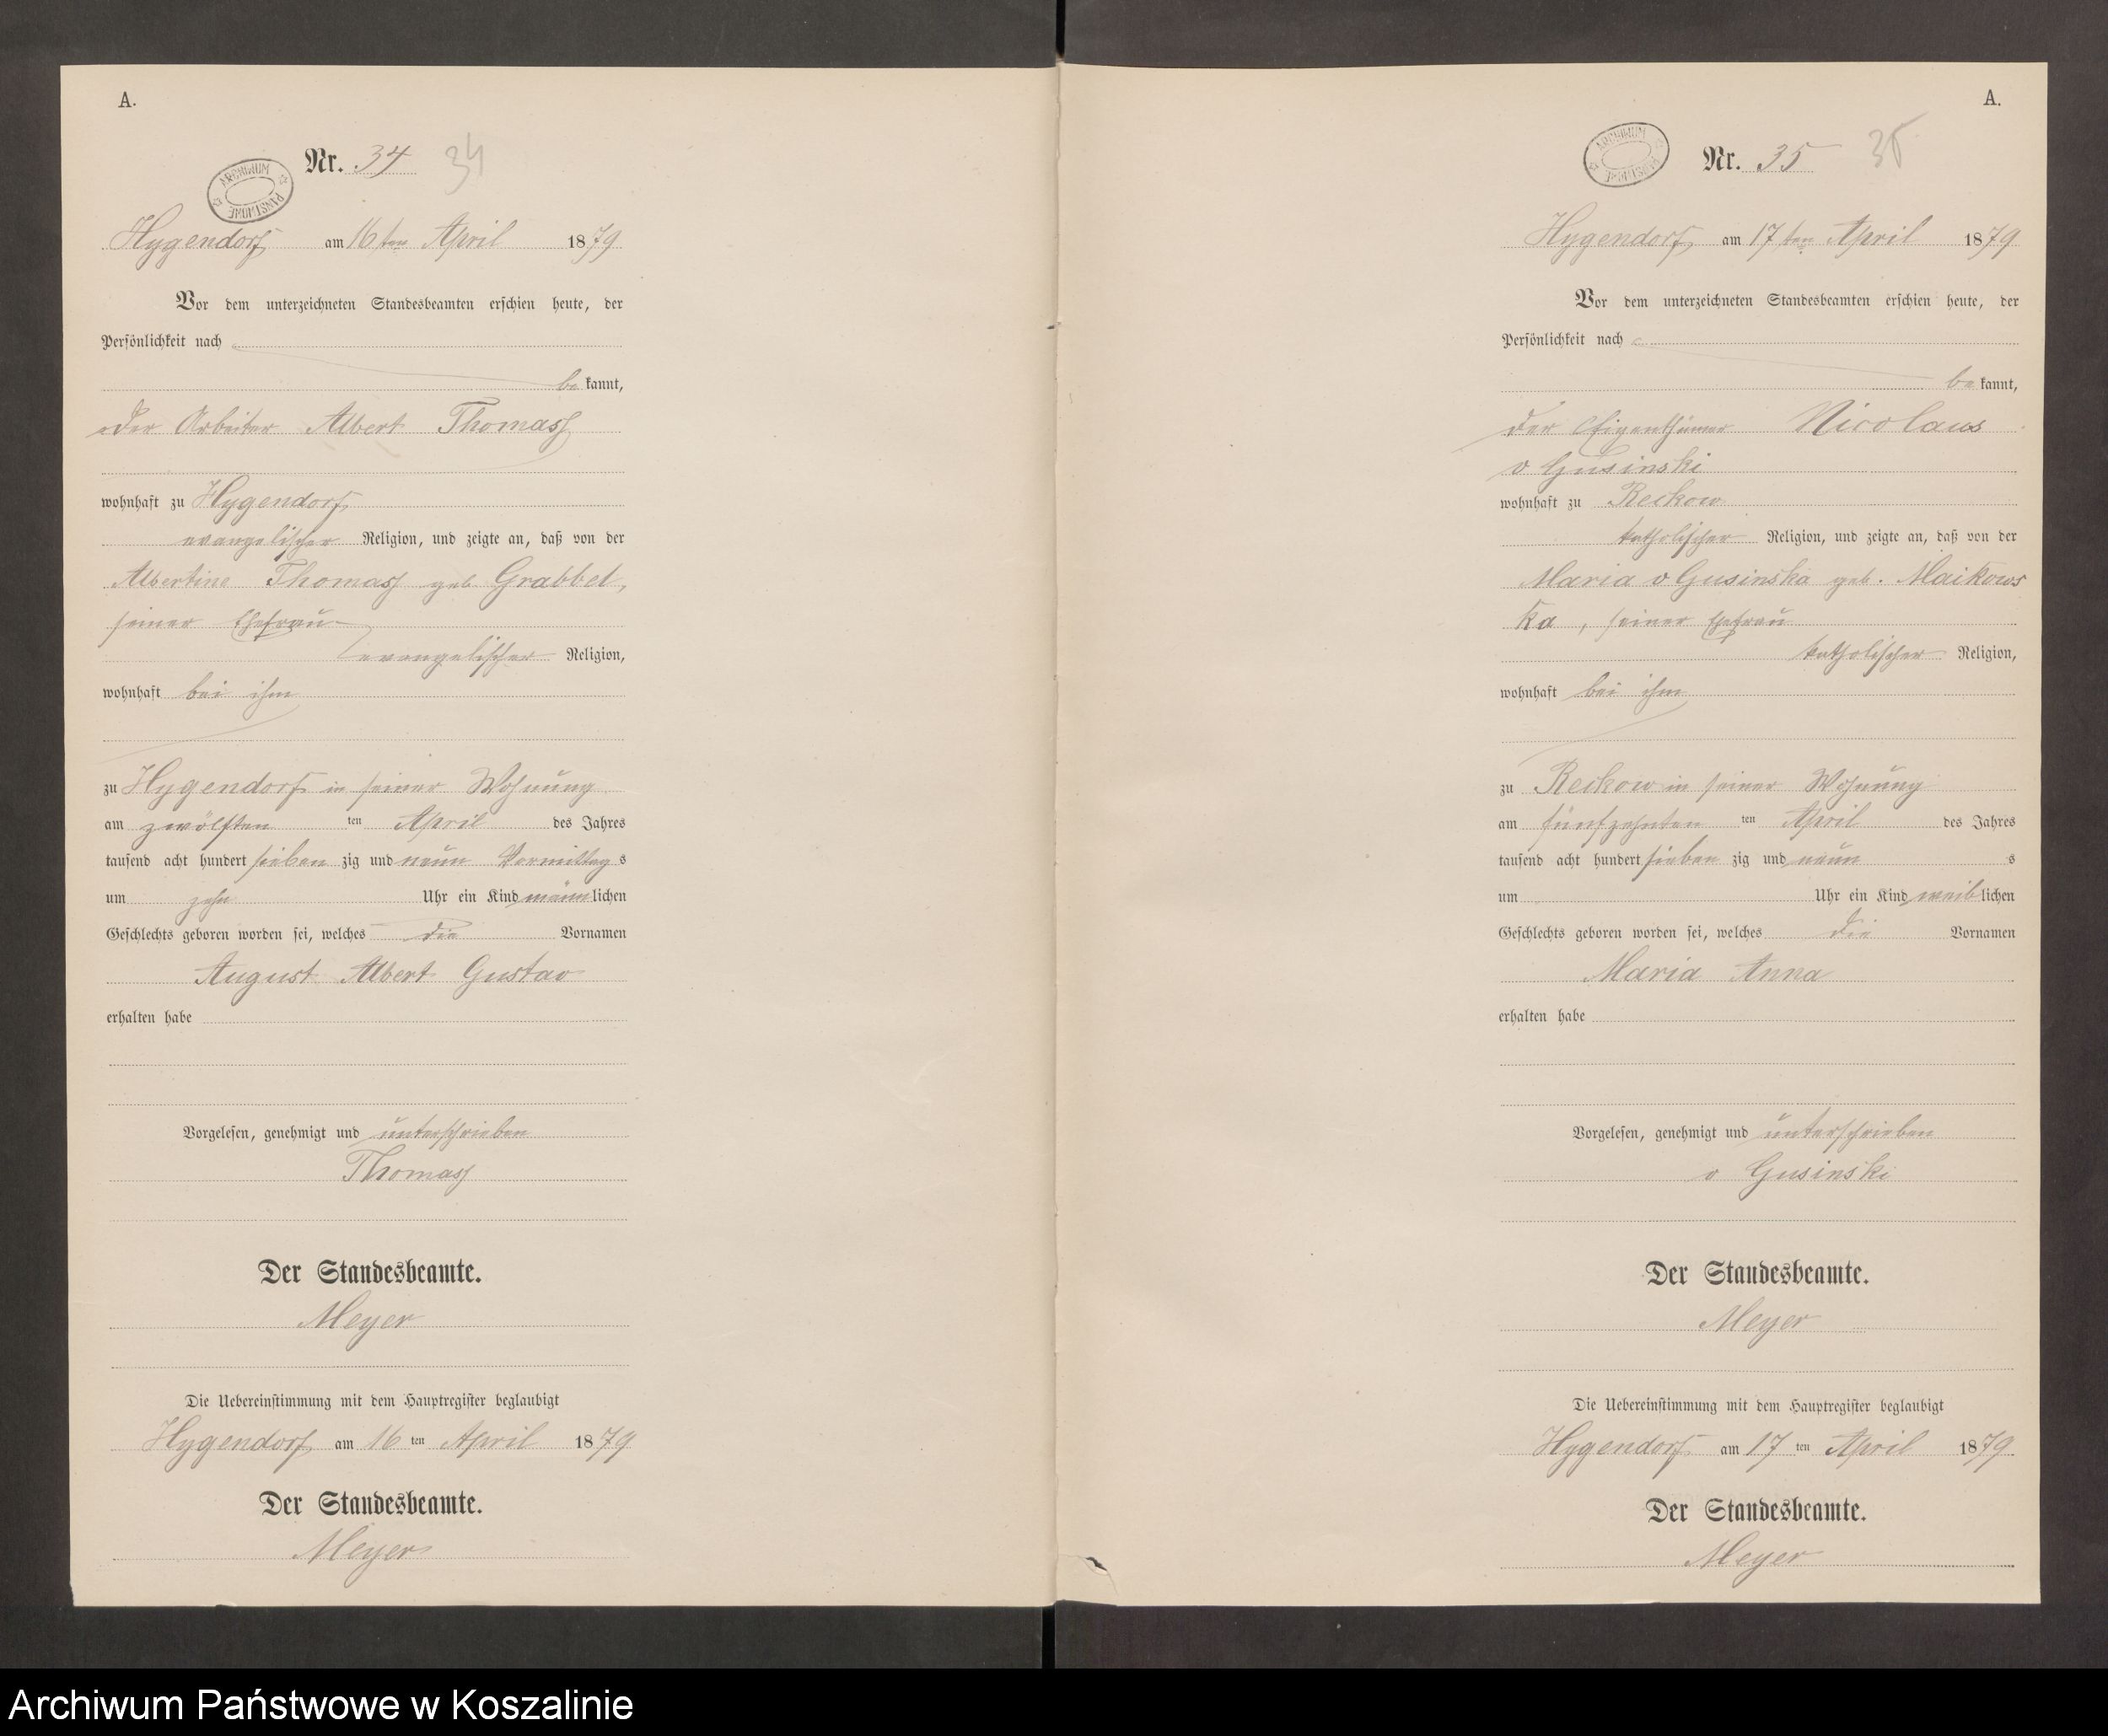 A.
Nr. 34 34
ARCHIWUM PAŃSTWOWE
Hygendorf am 16ten April 1879
Vor dem unterzeichneten Standesbeamten erschien heute, der
Persönlichkeit nach
bekannt,
der Arbeiter Albert Thomass
wohnhaft zu Hygendorf
evangelischer Religion, und zeigte an, daß von der
Albertine Thomass geb Grabbel,
seiner Ehefrau
evangelischer Religion,
wohnhaft bei ihm
zu Hygendorf in seiner Wohnung
am zwölften ten April des Jahres
tausend acht hundert siebenzig und neun Vormittags
um zehn Uhr ein Kind männlichen
Geschlechts geboren worden sei, welches die Vornamen
August Albert Gustav
erhalten habe
Vorgelesen, genehmigt und unterschrieben
Thomass
Der Standesbeamte.
Meyer
Die Uebereinstimmung mit dem Hauptregister beglaubigt
Hygendorf am 16ten April 1879
Der Standesbeamte.
Meyer
A.
ARCHIWUM PAŃSTWOWE
Nr. 35 35
Hygendorf am 17ten April 1879
Vor dem unterzeichneten Standesbeamten erschien heute, der
Persönlichkeit nach
bekannt,
der Eigenthümer Nicolaus
v Gusinski
wohnhaft zu Reckow
katholischer Religion, und zeigte an, daß von der
Maria v Gusinska geb. Maikows
ka, seiner Ehefrau
katholischer Religion,
wohnhaft bei ihm
zu Reckow in seiner Wohnung
am fünfzehnten ten April des Jahres
tausend acht hundert siebenzig und neun s
um Uhr ein Kind weiblichen
Geschlechts geboren worden sei, welches die Vornamen
Maria Anna
erhalten habe
Vorgelesen, genehmigt und unterschrieben
v Gusinski
Der Standesbeamte.
Meyer
Die Uebereinstimmung mit dem Hauptregister beglaubigt
Hygendorf am 17ten April 1879
Der Standesbeamte.
Meyer
Archiwum Państwowe w Koszalinie